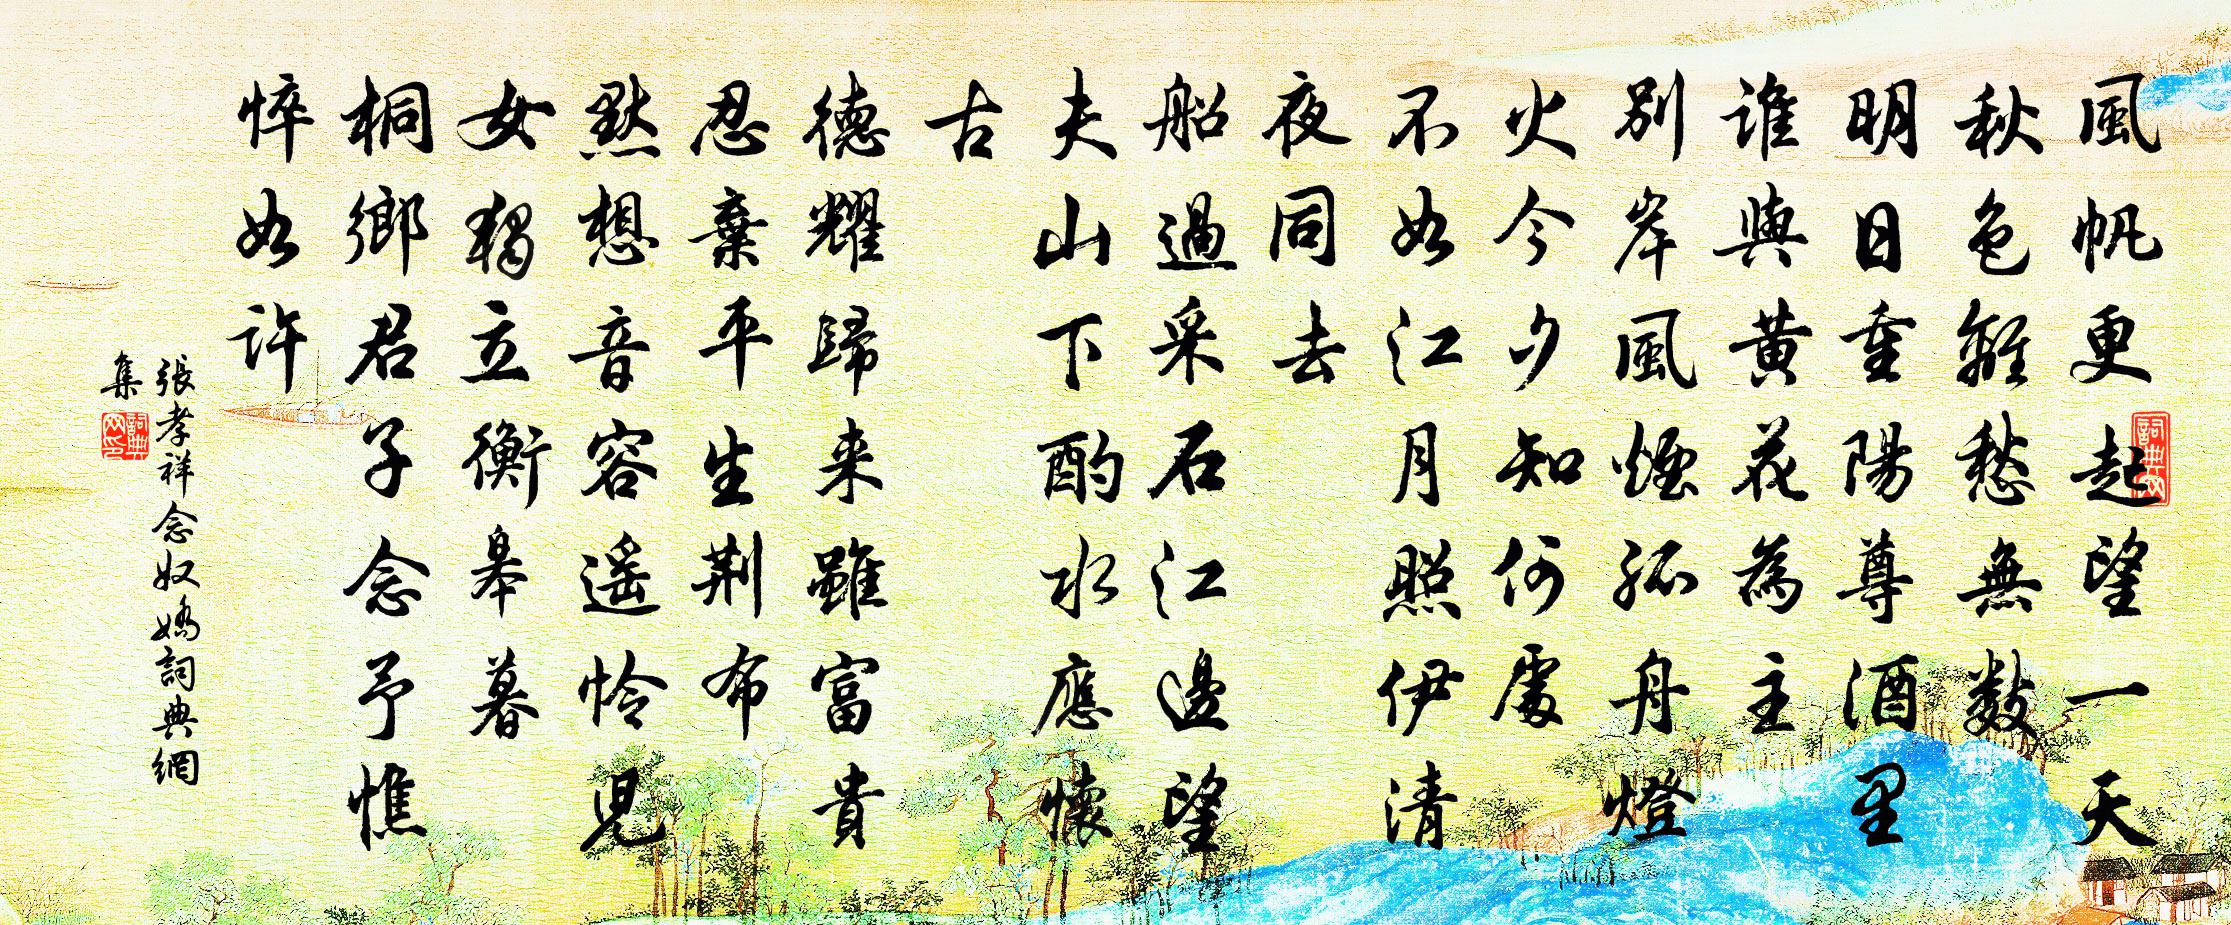 風帆更起望一天
秋色離愁無數
明日重陽尊酒里
誰與黄花為主
別岸風煙孤舟燈
火今夕知何處
不如江月照伊清
夜同去
船過采石江邊望
夫山下酌水應懷
古
德耀歸来雖富貴
忍棄平生荆布
默想音容遥怜児
女獨立衡皋暮
桐鄉君子念予憔
悴如許
張孝祥念奴嬌詞典網
集
詞典网
詞典网印